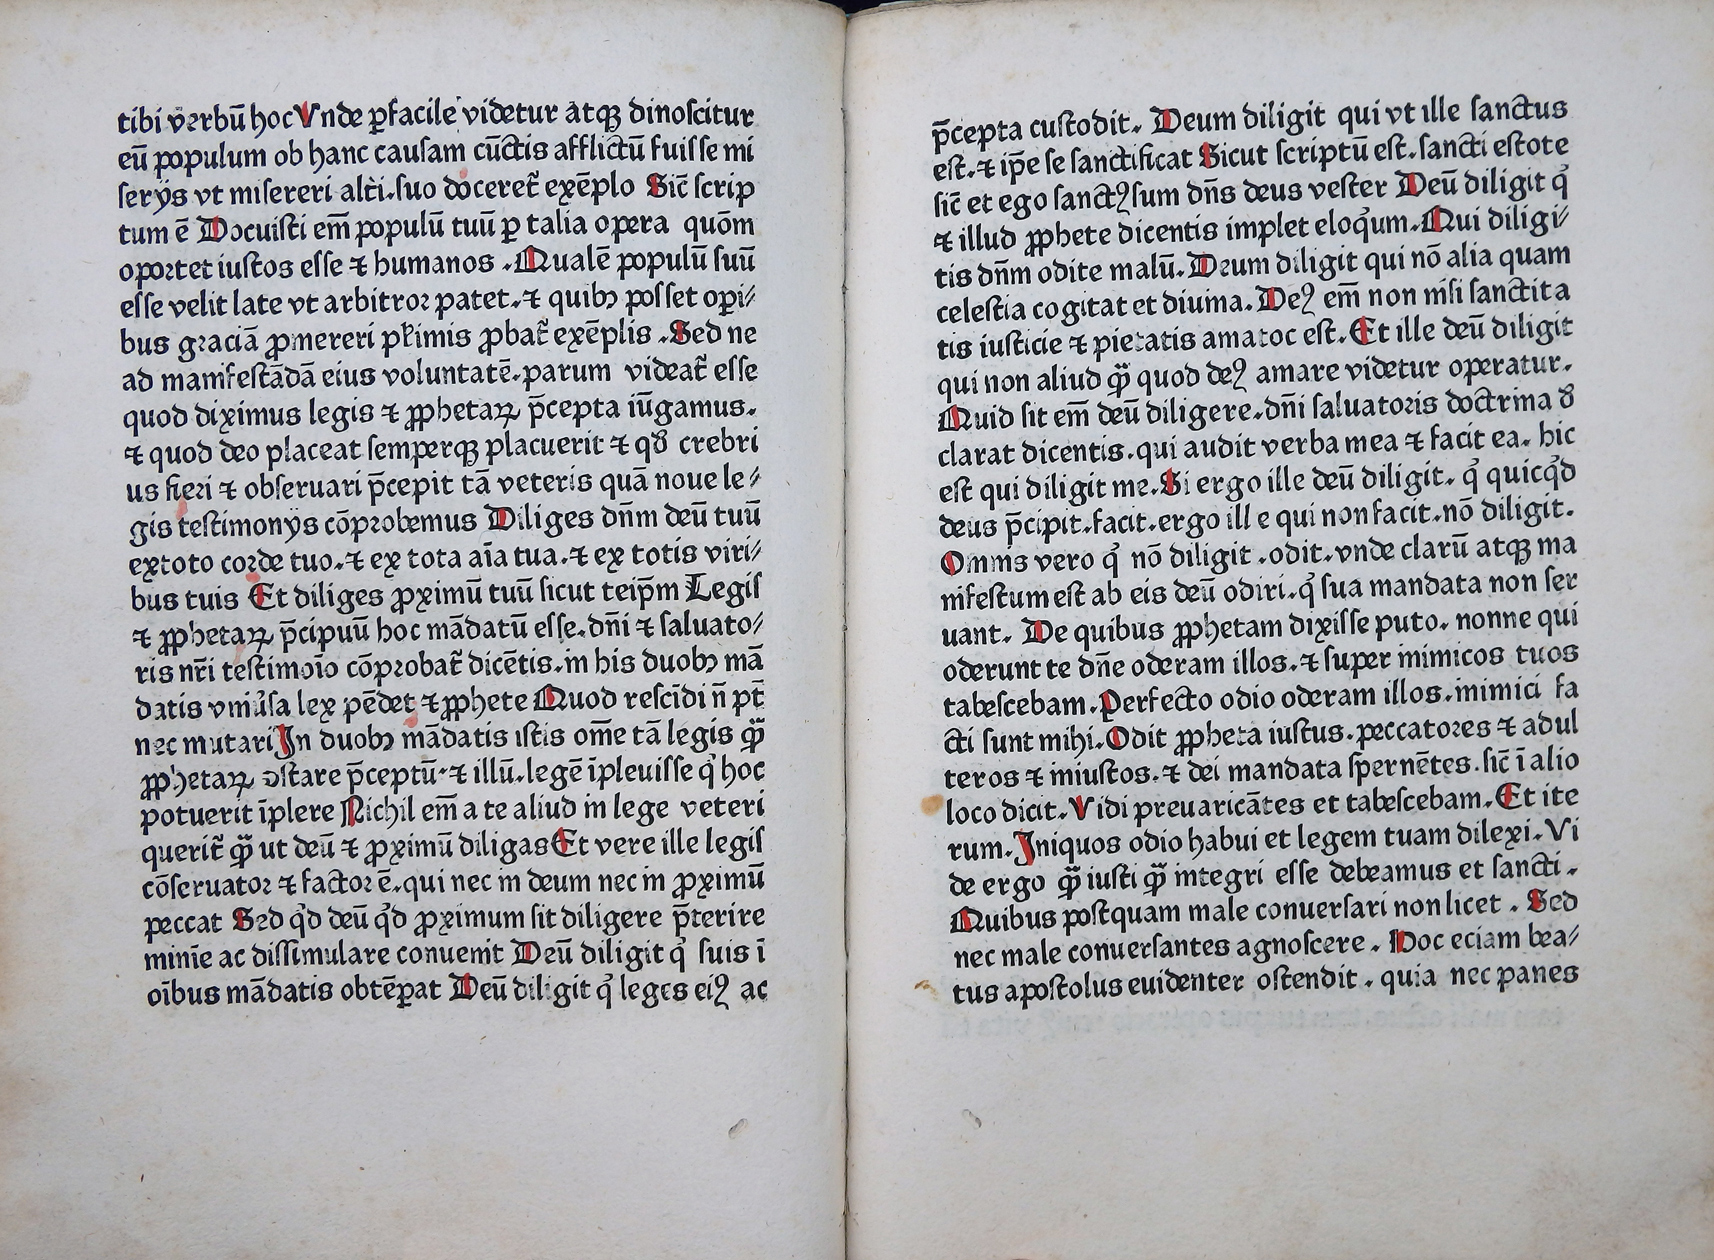 tibi verbū hoc Vnde ꝑfacile videtur atqꝫ dinoscitur
eū populum ob hanc causam cūctis afflictū fuisse mi
serijs vt misereri alt̄i.suo doceret̄ exēplo Sic̄ scrip
tum ē Docuisti em̄ populū tuū ꝑ talia opera quōm
oportet iustos esse ⁊ humanos .Qualē populū suū
esse velit late vt arbitror patet.⁊ quibꝫ posset opi⸗
bus graciā ꝓmereri pͥimis ꝓbat̄ exēplis .Sed ne
ad manifestādā eius voluntatē.parum videat̄ esse
quod diximus legis ⁊ ꝓphetaꝝ p̄cepta iūgamus.
⁊ quod deo placeat semperqꝫ placuerit ⁊ qð crebri
us fieri ⁊ obseruari p̄cepit tā veteris quā noue le⸗
gis testimonijs cōprobemus Diliges dn̄m deū tuū
extoto corde tuo.⁊ ex tota aīa tua.⁊ ex totis viri⸗
bus tuis Et diliges ꝓximū tuū sicut teip̄m Legis
⁊ ꝓphetaꝝ p̄cipuū hoc mādatū esse.dn̄i ⁊ saluato⸗
ris nr̄i testimoīo cōprobat̄ dicētis.in his duobꝫ mā
datis vniu̾sa lex pēdet ⁊ ꝓphete Quod rescīdi n̄ pt̄
nec mutari In duobꝫ mādatis istis om̄e tā legis qͣ̄
ꝓphetaꝝ ꝯstare p̄ceptū.⁊ illū.legē īpleuisse qͥ hoc
potuerit īplere Nichil em̄ a te aliud in lege veteri
querit̄ qͣ̄ ut deū ⁊ ꝓximū diligas Et vere ille legis
cōseruator ⁊ factor ē.qui nec in deum nec in ꝓximū
peccat Sed qͥd deū qͥd ꝓximum sit diligere p̄terire
minīe ac dissimulare conuenit Deū diligit qͥ suis ī
oībus mādatis obtēꝑat Deū diligit qͥ leges eiꝰ ac
p̄cepta custodit. Deum diligit qui vt ille sanctus
est.⁊ ip̄e se sanctificat Sicut scriptū est.sancti estote
sic̄ et ego sanctꝰ sum dn̄s deus vester Deū diligit qͥ
⁊ illud ꝓphete dicentis implet eloqͥum.Qui diligi⸗
tis dn̄m odite malū.Deum diligit qui nō alia quam
celestia cogitat et diuina.Deꝰ em̄ non nisi sanctita
tis iusticie ⁊ pietatis amatoc est.Et ille deū diligit
qui non aliud qͣ̄ quod deꝰ amare videtur operatur.
Quid sit em̄ deū diligere.dn̄i saluatoris doctrina ð
clarat dicentis.qui audit verba mea ⁊ facit ea. hic
est qui diligit me.Si ergo ille deū diligit. qͥ quicqͥd
deus p̄cipit.facit.ergo ill e qui non facit.nō diligit.
Omnis vero qͥ nō diligit .odit.vnde clarū atqꝫ ma
nifestum est ab eis deū odiri.qͥ sua mandata non ser
uant. De quibus ꝓphetam dixisse puto. nonne qui
oderunt te dn̄e oderam illos.⁊ super inimicos tuos
tabescebam.Perfecto odio oderam illos.inimici fa
cti sunt mihi.Odit ꝓpheta iustus.peccatores ⁊ adul
teros ⁊ iniustos.⁊ dei mandata spernētes.sic̄ ī alio
loco dicit.Vidi preuaricātes et tabescebam.Et ite
rum.Iniquos odio habui et legem tuam dilexi.Vi
de ergo qͣ̄ iusti qͣ̄ integri esse debeamus et sancti .
Quibus postquam male conuersari non licet . Sed
nec male conuersantes agnoscere . Hoc eciam bea⸗
tus apostolus euidenter ostendit . quia nec panes